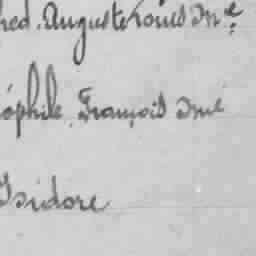 red. Auguste Louis Mᵉ
ophile. François Jmᵉ
Isidore